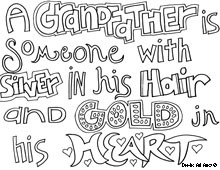 A GRANDFATHER is
Someone with
SILVER iN his Hair
and GOLD in
his HEART